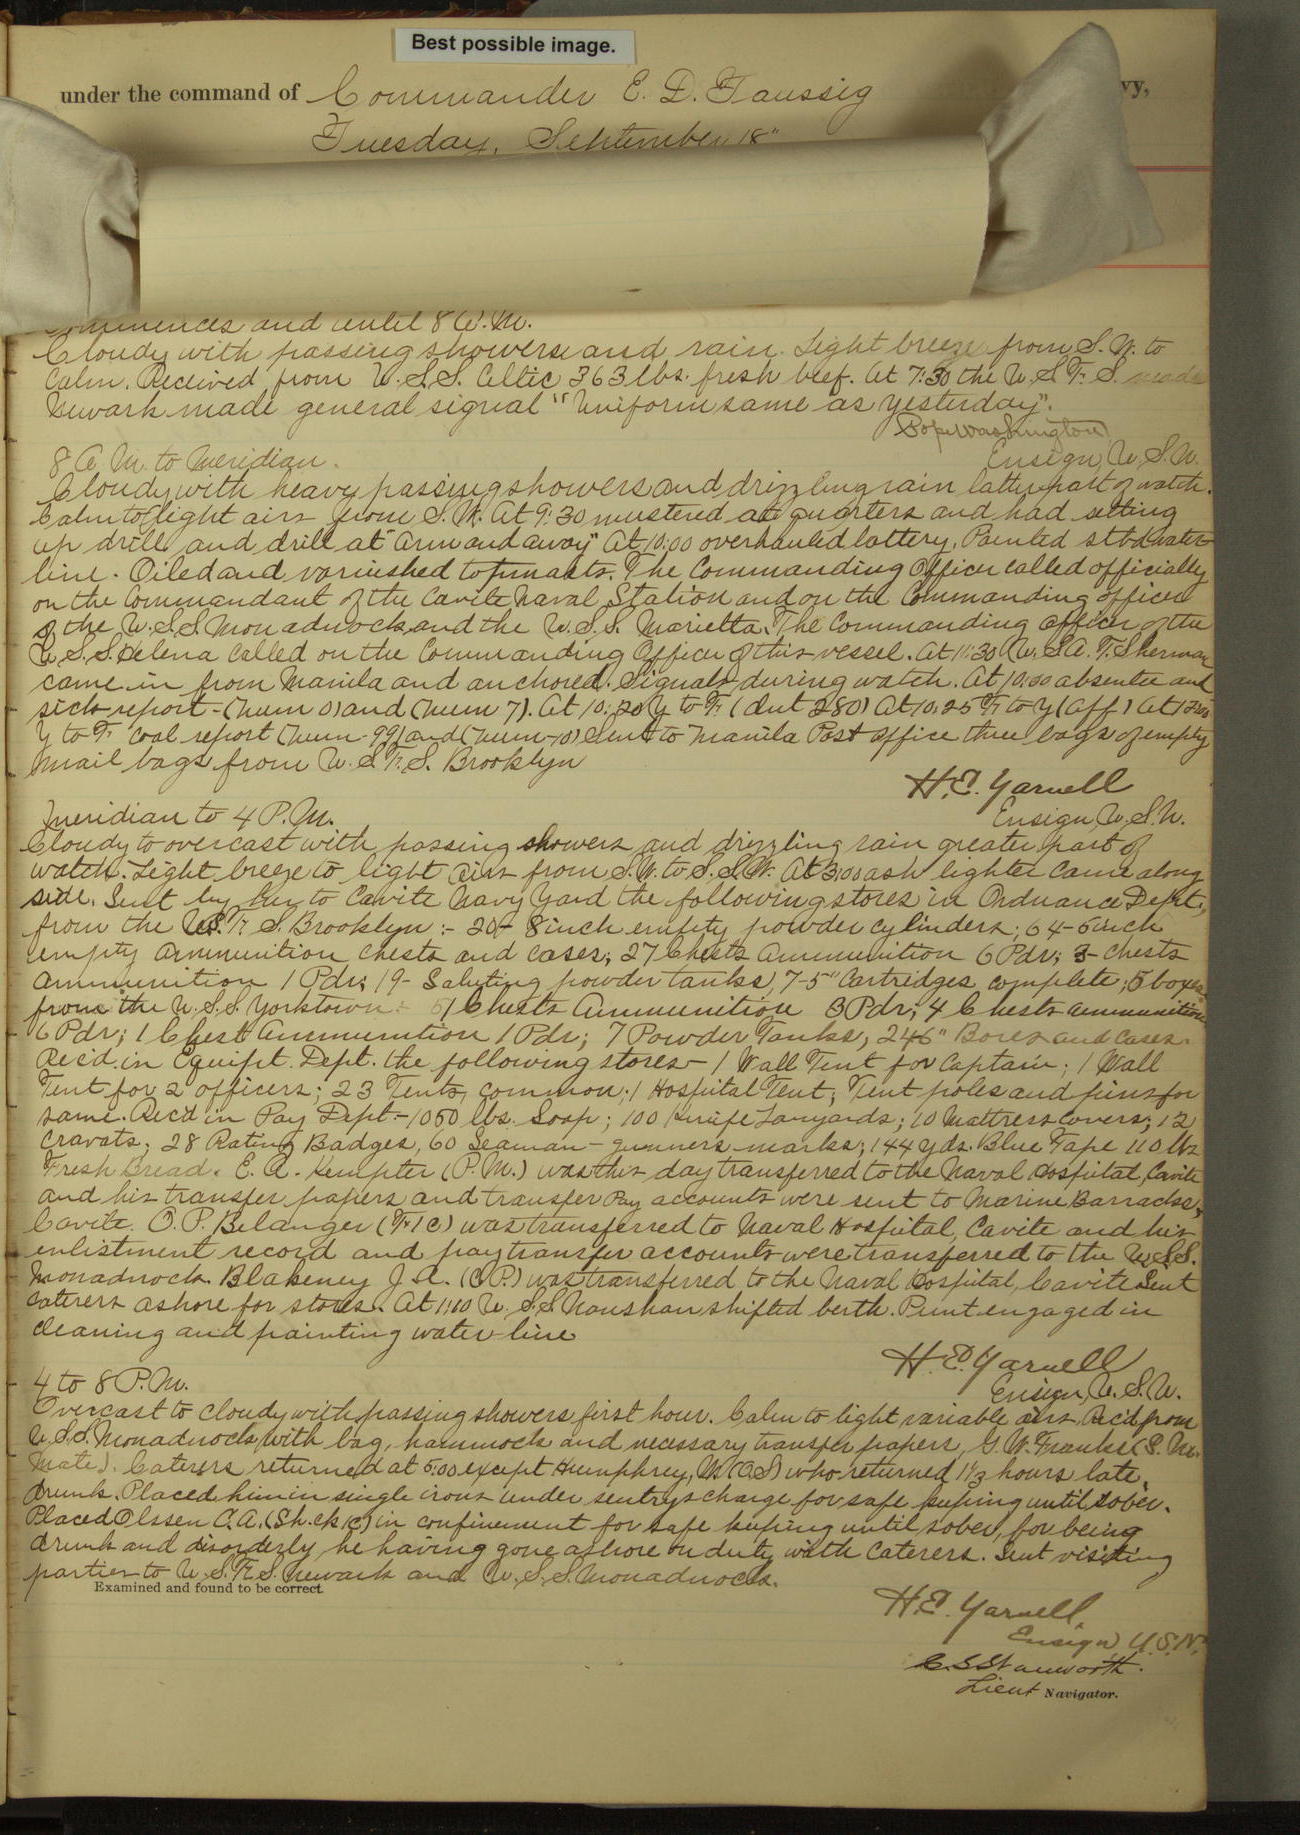 Best possible image.
under the command of Commander E. D. Taussig vy,
Tuesday, September 18"
Commences and until 8 A.M.
Cloudy with passing showers and rain. Light breeze from S.W. to
Calm. Received from U.S.S. Celtic 363 lbs. fresh beef. At 7:30 the U.S.F.S.
Newark made general signal "Uniform same as yesterday".
Pope Washington
Ensign, U.S.N.
8 A.M. to Meridian.
Cloudy with heavy passing showers and drizzling rain latter part of watch.
Calm to light airs from S.W. At 9:30 mustered at quarters and had setting
up drill and drill at "arm and away" At 10:00 overhauled battery, Painted stbd water
line. Oiled and varnished topmasts. The Commanding Officer called officially
on the Commandant of the Cavite Naval Station and on the Commanding officer
of the U.S.S. Monadnock and the U.S.S. Marietta. The Commanding officer of the
U.S.S. Helena called on the Commanding Officer of this vessel. At 11:30 U.S.A.T. Sherman
came in from Manila and anchored. Signals during watch. At 10:00 absentee and
sick report - (Num 0) and (Num 7). At 10:20 Y to F (dut 280) At 10:25 F to Y (aff) At
Y to F coal report (Num-99) and (Num-10) Sent to Manila Post office three bags of empty
mail bags from U.S.F.S. Brooklyn
H.E. Yarnell
Ensign, U.S.N.
Meridian to 4 P.M.
Cloudy to overcast with passing showers and drizzling rain greater part of
watch. Light breeze to light airs from S.W. to S.S.W. At 3:00 ash lighter came along
side. Sent by her to Cavite Navy Yard the following stores in Ordnance Dept.,
from the U.S.F.S. Brooklyn:- 20- 8 inch empty powder cylinders; 64-5 inch
empty ammunition chests and cases; 27 Chests Ammunition 6 Pdr; 3- chests
ammunition 1 Pdr; 19- Saluting powder tanks, 7-5" Cartridges complete; 5 boxes
from the U.S.S. Yorktown: 51 Chests Ammunition 3 Pdr; 4 Chests ammunition
6 Pdr; 1 Chest Ammunition 1 Pdr; 7 Powder Tanks, 246" Boxes and Cases.
Rec'd in Equipt. Dept. the following stores - 1 Wall Tent for Captain; 1 Wall
Tent for 2 officers; 23 Tents, common; 1 Hospital Tent; Tent poles and pins for
same. Rec'd in Pay Dept.- 1050 lbs. Soap; 100 Knife Lanyards; 10 Mattress covers; 12
Cravats; 28 Rating Badges, 60 Seaman-gunners marks; 144 yds. Blue Tape 110 lbs
Fresh Bread. E. A. Kempter (P.M.) was this day transferred to the Naval Hospital, Cavite
and his transfer papers and transfer Pay accounts were sent to Marine Barracks,
Cavite. O. P. Belanger (F1C) was transferred to Naval Hospital, Cavite and his
enlistment record and pay transfer accounts were transferred to the U.S.S.
Monadnock. Blakeney J. A. (C.P.) was transferred to the Naval Hospital, Cavite Sent
caterers ashore for stores. At 1:10 U.S.S. Nanshan shifted berth. Punt engaged in
cleaning and painting water line
H.E. Yarnell
Ensign, U.S.N.
4 to 8 P.M.
Overcast to cloudy with passing showers first hour. Calm to light variable airs. Rec'd from
U.S.S. Monadnock with bag, hammock and necessary transfer papers, G. W. Franks (S. M.
Mate). Caterers returned at 5:00 except Humphrey, M (O.S) who returned 1 1/3 hours late,
drunk. Placed him in single irons under sentry's charge for safe keeping until sober.
Placed Olssen C.A. (Sh.ck.1c) in confinement for safe keeping until sober, for being
drunk and disorderly, he having gone ashore on duty with Caterers. Sent visiting
parties to U.S.F.S. Newark and U.S.S. Monadnock.
Examined and found to be correct.
H.E. Yarnell,
Ensign U.S.N.
C.S. Stanworth.
Lieut Navigator.